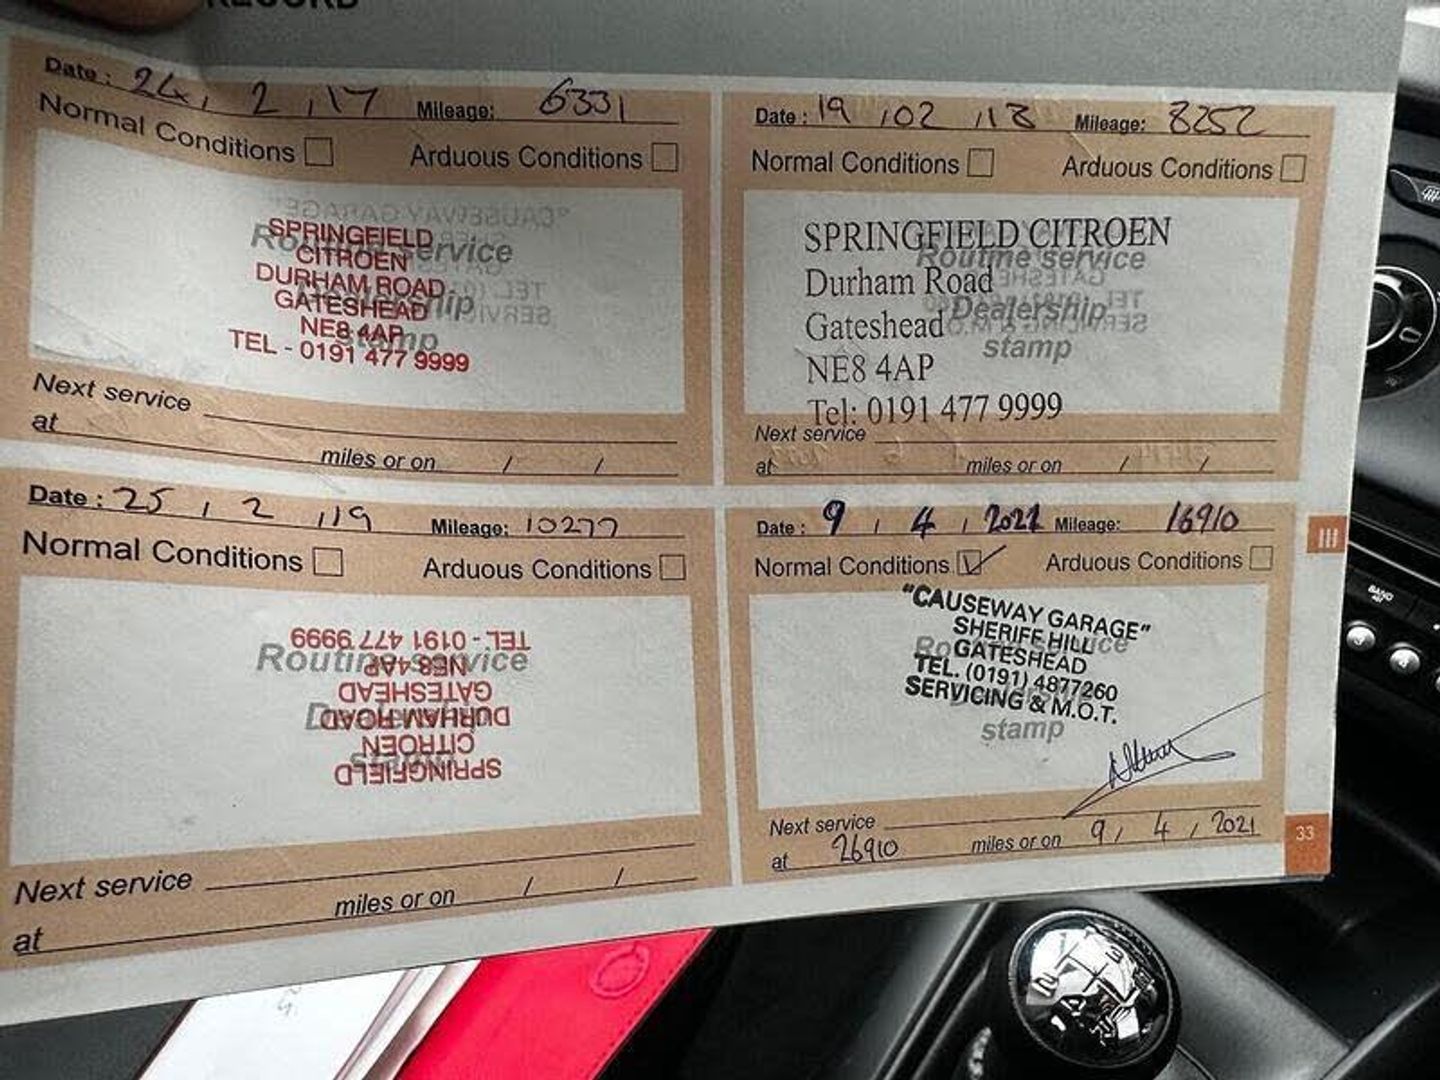 RECORD
Date : 24 / 2 / 17 Mileage: 6331
Normal Conditions Arduous Conditions
Routine service
Dealership
stamp
SPRINGFIELD
CITROEN
DURHAM ROAD
GATESHEAD
NE8 4AP
TEL - 0191 477 9999
Next service
at miles or on / /
Date : 19 / 02 / 18 Mileage: 8252
Normal Conditions Arduous Conditions
Routine service
Dealership
stamp
SPRINGFIELD CITROEN
Durham Road
Gateshead
NE8 4AP
Tel: 0191 477 9999
Next service
at miles or on / /
Date : 25 / 2 / 19 Mileage: 10277
Normal Conditions Arduous Conditions
Routine service
Dealership
stamp
SPRINGFIELD
CITROEN
DURHAM ROAD
GATESHEAD
NE8 4AP
TEL - 0191 477 9999
Next service
at miles or on / /
Date : 9 / 4 / 2021 Mileage: 16910
Normal Conditions Arduous Conditions
Routine service
Dealership
stamp
"CAUSEWAY GARAGE"
SHERIFF HILL
GATESHEAD
TEL. (0191) 4877260
SERVICING & M.O.T.
Next service
at 26910 miles or on 9 / 4 / 2021
III
33
BAND